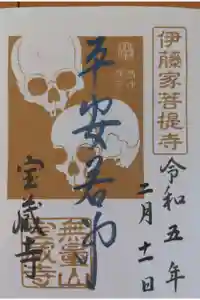 伊藤家菩提寺
令和五年
二月十一日
若冲
宝蔵寺
無量山
宝蔵寺